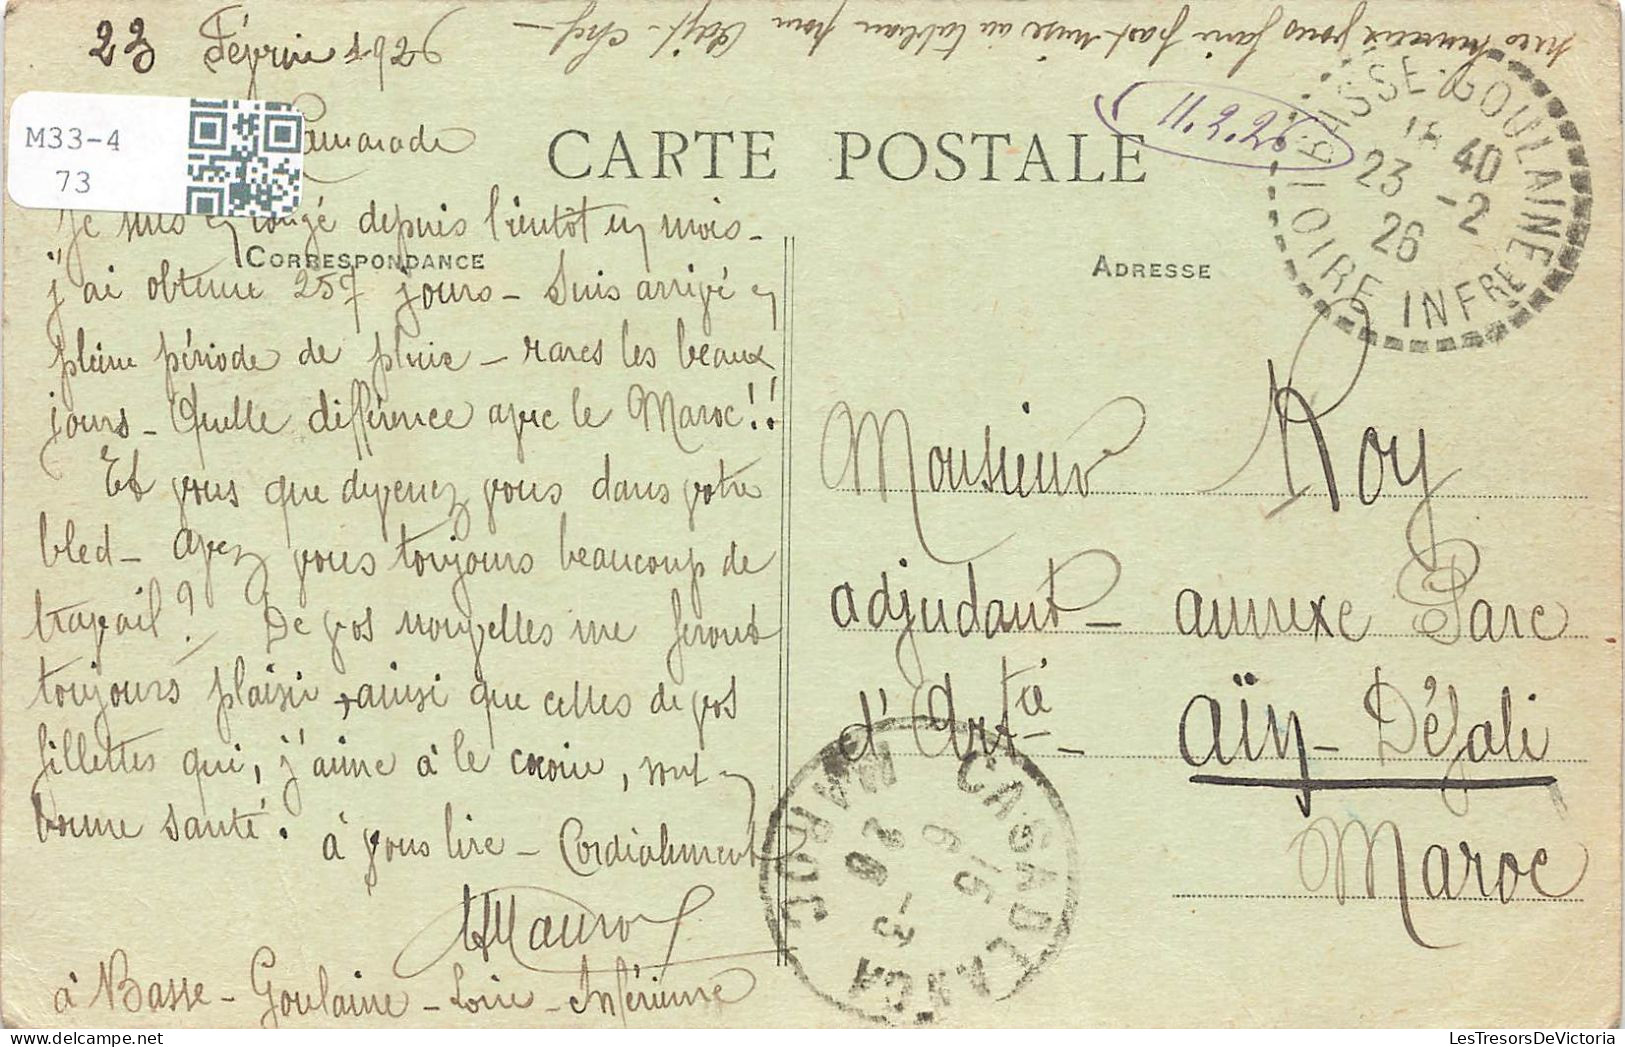 23 Février 1926
M33-4
73
Camarade
CARTE POSTALE
11.2.26
BASSE-GOULAINE
15 40
23 -2
26
LOIRE INFRE
CORRESPONDANCE
ADRESSE
Je suis en congé depuis bientôt un mois -
j'ai obtenu 257 jours - Suis arrivé en
pleine période de pluie - rares les beaux
jours - Quelle différence avec le Maroc!!
Et vous que devenez vous dans votre
bled - avez vous toujours beaucoup de
travail? De vos nouvelles me feront
toujours plaisir, ainsi que celles de vos
fillettes qui, j'aime à le croire, sont en
bonne santé.
à vous lire - Cordialement
à Basse-Goulaine - Loire-Inférieure
heureux vous faire part mise au tableau pour Adjt-Chef -
Monsieur Roy
adjudant - annexe Parc
d'Artie - aïn-Défali
Maroc
CASABLANCA
MAROC
LesTresorsDeVictoria